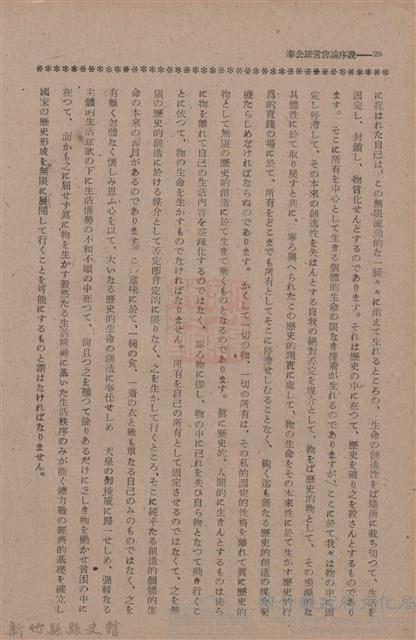 奉公經営會論序説——26
に捉はれた自己は、この無限流動的な一瞬々々に消えて生れるところの、生命の創造性をば随所に裁ちつつて、生活を
固定し、封鎖し、物質化せんとするのであります。それは歴史の中に在つて、歴史を破り之を殺さんとするものであり
ます。そこに所有を中心として生きる個體的生命の限りなき摸着が生れるのでありますが、ここに於て我々は物の中に固
定し停滯して、その本來の創造性を失はんとする自我の絶對否定を媒介として、物をば歴史的物として、その根源的な
具體性に於て取り戻すと共に、寧ろ與へられたこの歴史的現實に處して、物の生命をその本來性に於て生かす歴史的行
爲的實踐の場に於て、所有をどこまでも所有としてそこに停滯せしむることなく、飽く迄も新たなる歴史的創造の媒介契
機たらしめなければならぬのであります。かくして一切の物、一切の所有は、その私的固定的性格を離れて眞に歴史的
物として無限の歴史的創造に於て生きて働くものとなるのであります。眞に歴史的、人間的に生きんとするものは徒ら
に物を離れて自己の生活内容を空疎化するのではなく、寧ろ物に即し、物の中に己れを失ひ自ら物となつて動き行くこ
とに依つて、物の生命を生かすものでなければなりません。所有を自己の所有として固定させるのではなくて、之を無
限の歴史的創造に於ける媒介として否定即肯定的に限りなく、之を生かして行くところ、そこに純乎たる創造的個體的生
命の本來の面目があるのであります。この意味に於て、一椀の食、一着の衣と雖も單なる自己のみのものではなく、之を
有難く勿體なく懐しみ思ふ心を以て、大いなる歴史的生命の創造に奉仕せしめ　天皇の御稜威に歸一せしめ、強靱なる
主體的生活意欲の下に生活情勢の不和不順の中に在つて、尚且つ之を補つて餘りあるだけに乏しき物を働かせ貧困の中に
在つて、而かも之に屈せず眞に物を生かす毅然たる生活精神に基いた生活秩序のみが能く總力戰の經濟的基礎を確立し
國家の歴史形成を無限に展開して行くことを可能にするものと謂はなければなりません。
新竹縣縣史館
新竹縣政府文化局